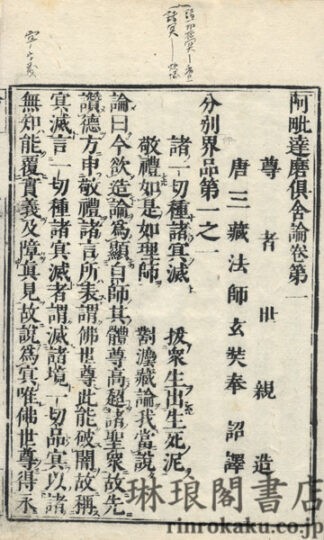 阿毗達磨俱舍論卷第一
尊者世親造
唐三藏法師玄奘奉詔譯
分別界品第一之一
諸一切種諸冥滅　拔衆生出生死泥
敬禮如是如理師　對法藏論我當說
論曰今欲造論爲顯自師其體尊高超諸聖衆故先
讚德方申敬禮諸言所表謂佛世尊此能破闇故稱
冥滅言一切種諸冥滅者謂滅諸境一切品冥以諸
無知能覆實義及障眞見故說爲冥唯佛世尊得永
琳琅閣書店
rinrokaku.co.jp